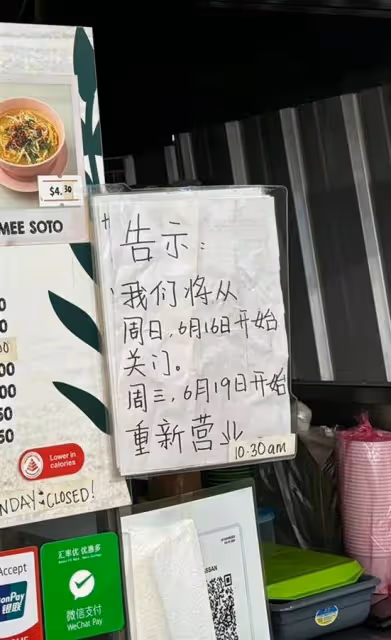 $4.30
MEE SOTO
告示:
我们将从
周日,6月16日开始
关门。
周三,6月19日开始
重新营业
10.30am
00
50
50
Lower in
calories
NDAY : CLOSED!
Accept
onPay
银联
汇率优 优惠多
微信支付
WeChat Pay